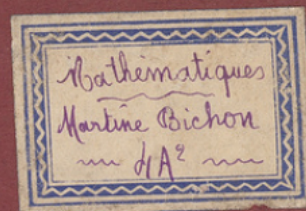 Mathématiques
Martine Bichon
4A²